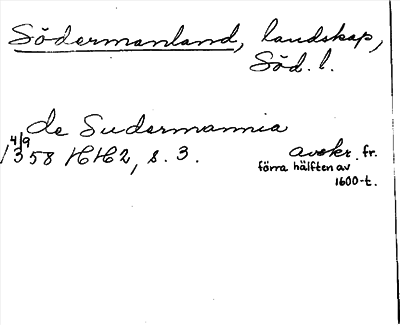 Södermanland, landskap,
Söd. l.
de Sudermannia
4/9
1358 HH2, s. 3. avskr. fr.
förra hälften av
1600-t.